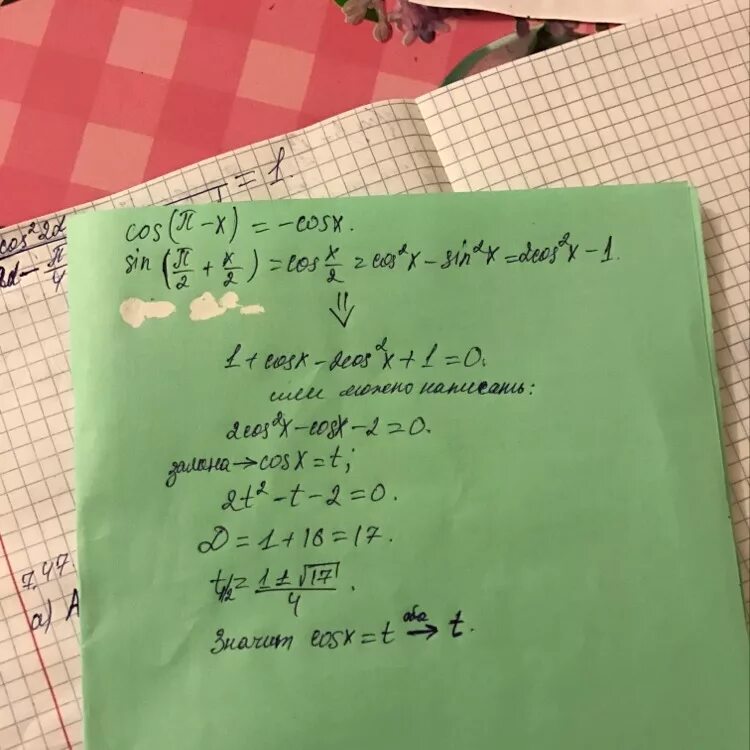 = 1.
cos²2α
2α - π/4
cos(π - x) = -cosx.
sin(π/2 + x/2) = cos x/2 = cos²x - sin²x = 2cos²x - 1.
⇓
1 + cosx - 2cos²x + 1 = 0.
или можно написать:
2cos²x - cosx - 2 = 0.
замена → cosx = t;
2t² - t - 2 = 0.
D = 1 + 16 = 17.
t1/2 = (1 ± √17)/4.
Значит cosx = t оба → t.
7.47.
а) А